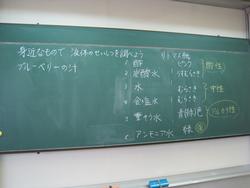 身近なもので、液体のせいしつを調べよう
ブルーベリーの汁
リトマス紙
1 酢 ピンク 酸性
2 炭酸水 うすむらさき
3 水 むらさき 中性
4 食塩水 むらさき
5 重そう水 青緑色 アルカリ性
6 アンモニア水 緑